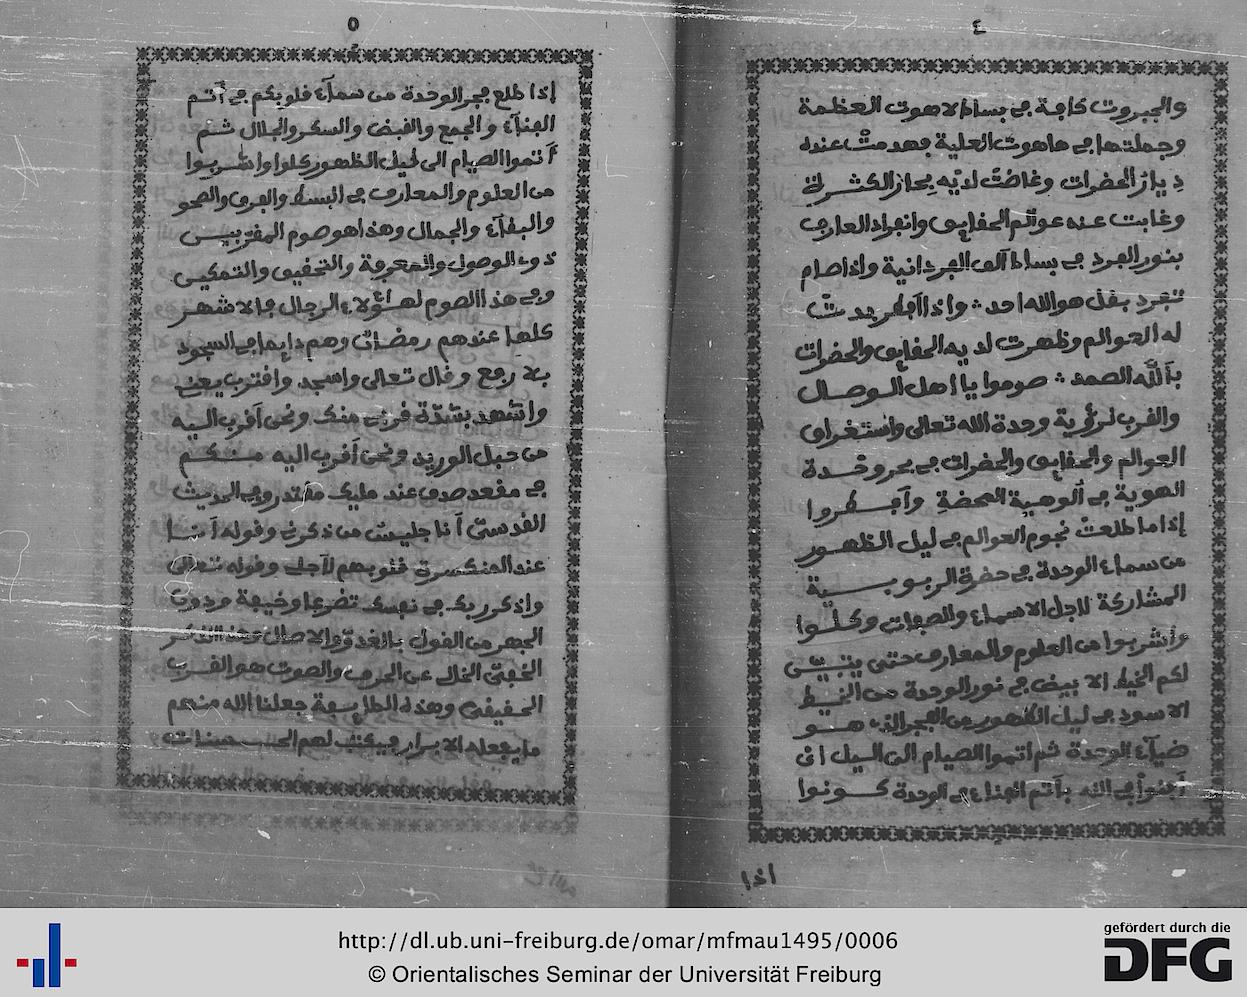 ٤
والجبروت كافة في بساط لاهوت العظمة
وجملتها في هاهوت العلية فهدمت عنده
ديار الحضرات وغاضت لديه بحار الكثرة
وغابت عنه عوالم الحقايق وانفراد العارف
بنور الفرد في بساط آلف الفردانية واذا صام
تفرد بقل هو الله احد واذا أفطر بدت
له العوالم وظهرت لديه الحقايق والحضرات
بآلله الصمد صوموا يا إهل الوصال
والقرب لرؤية وحدة الله تعالى واستغراق
العوالم والحقايق والحضرات في بحر وحدة
الهوية في ألوهية المحضة وأفطروا
إذا ما طلعت نجوم العوالم في ليل الظهور
من سماء الوحدة في حضرة الربوبية
المشاركة لاجل الاسماء والصفات وكلوا
واشربوا من العلوم والمعارف حتى يتبين
لكم الخيط الابيض في نور الوحدة من الخيط
الاسود في ليل الظهور من الفجر الذي هو
ضيآء الوحدة ثم اتموا الصيام الى اليل اي
أفنوا في الله بآتم الفناء في الوحدة كونوا
اذا
٥
إذا طلع فجر الوحدة من سمآء قلوبكم في أتم
الفنآء والجمع والقبض والسكر والجلال ثم
أتموا الصيام الى ليل الظهور كلوا واشربوا
من العلوم والمعارف في البسط والفرق والصحو
والبقآء والجمال وهذا هو صوم المقربيين
ذوي الوصول والمعرفة والتحقيق والتمكين
وفي هذا الصوم لهؤلاء الرجال فالاشهر
كلها عندهم رمضان وهم دايما في السجود
بلا رفع وقال تعالى واسجد واقترب يعني
واشهد بشدة قربي منك ونحن أقرب اليه
من حبل الوريد ونحن أقرب اليه منكم
في مقعد صدق عند مليك مقتدر وفي الحديث
القدسي أنا جليس من ذكرني وقوله أنا
عند المنكسرة قلوبهم لآجلي وقوله تعالى
واذكر ربك في نفسك تضرعا وخيفة ودون
الجهر من القول بالغدو والاصال وهذا الذكر
الخفي الخال عن الحرف والصوت هو القرب
الحقيقي وهذه الطايفة جعلنا الله منهم
ما يفعله الابرار فيكتب لهم الحسنات
http://dl.ub.uni-freiburg.de/omar/mfmau1495/0006
© Orientalisches Seminar der Universität Freiburg
gefördert durch die
DFG